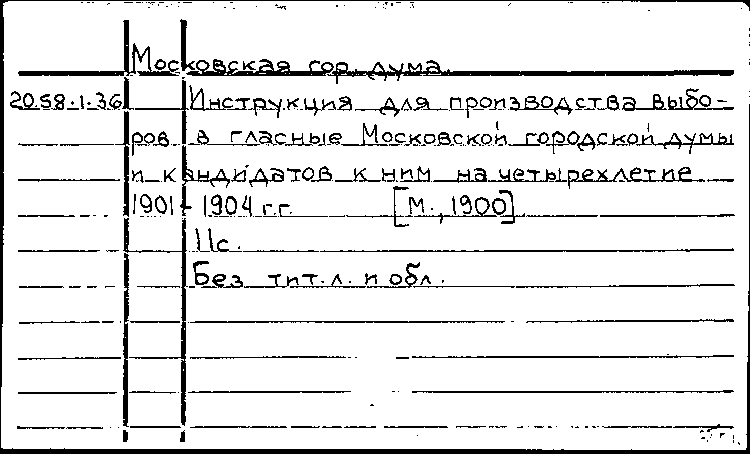 Московская гор. дума.
20.58.1.36 Инструкция для производства выбо-
ров в гласные Московской городской думы
и кандидатов к ним на четырехлетие
1901 - 1904 г.г. [М., 1900].
11с.
Без тит. л. и обл.